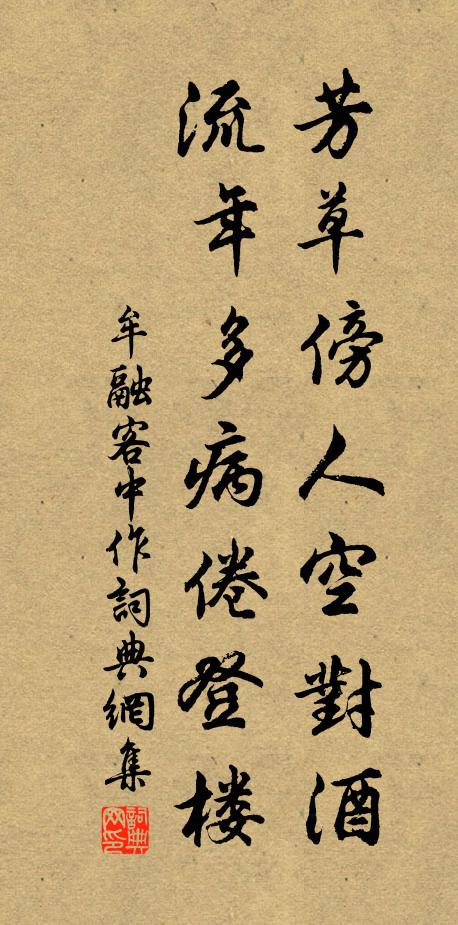 芳草傍人空對酒
流年多病倦登楼
牟融客中作詞典網集
詞典网印